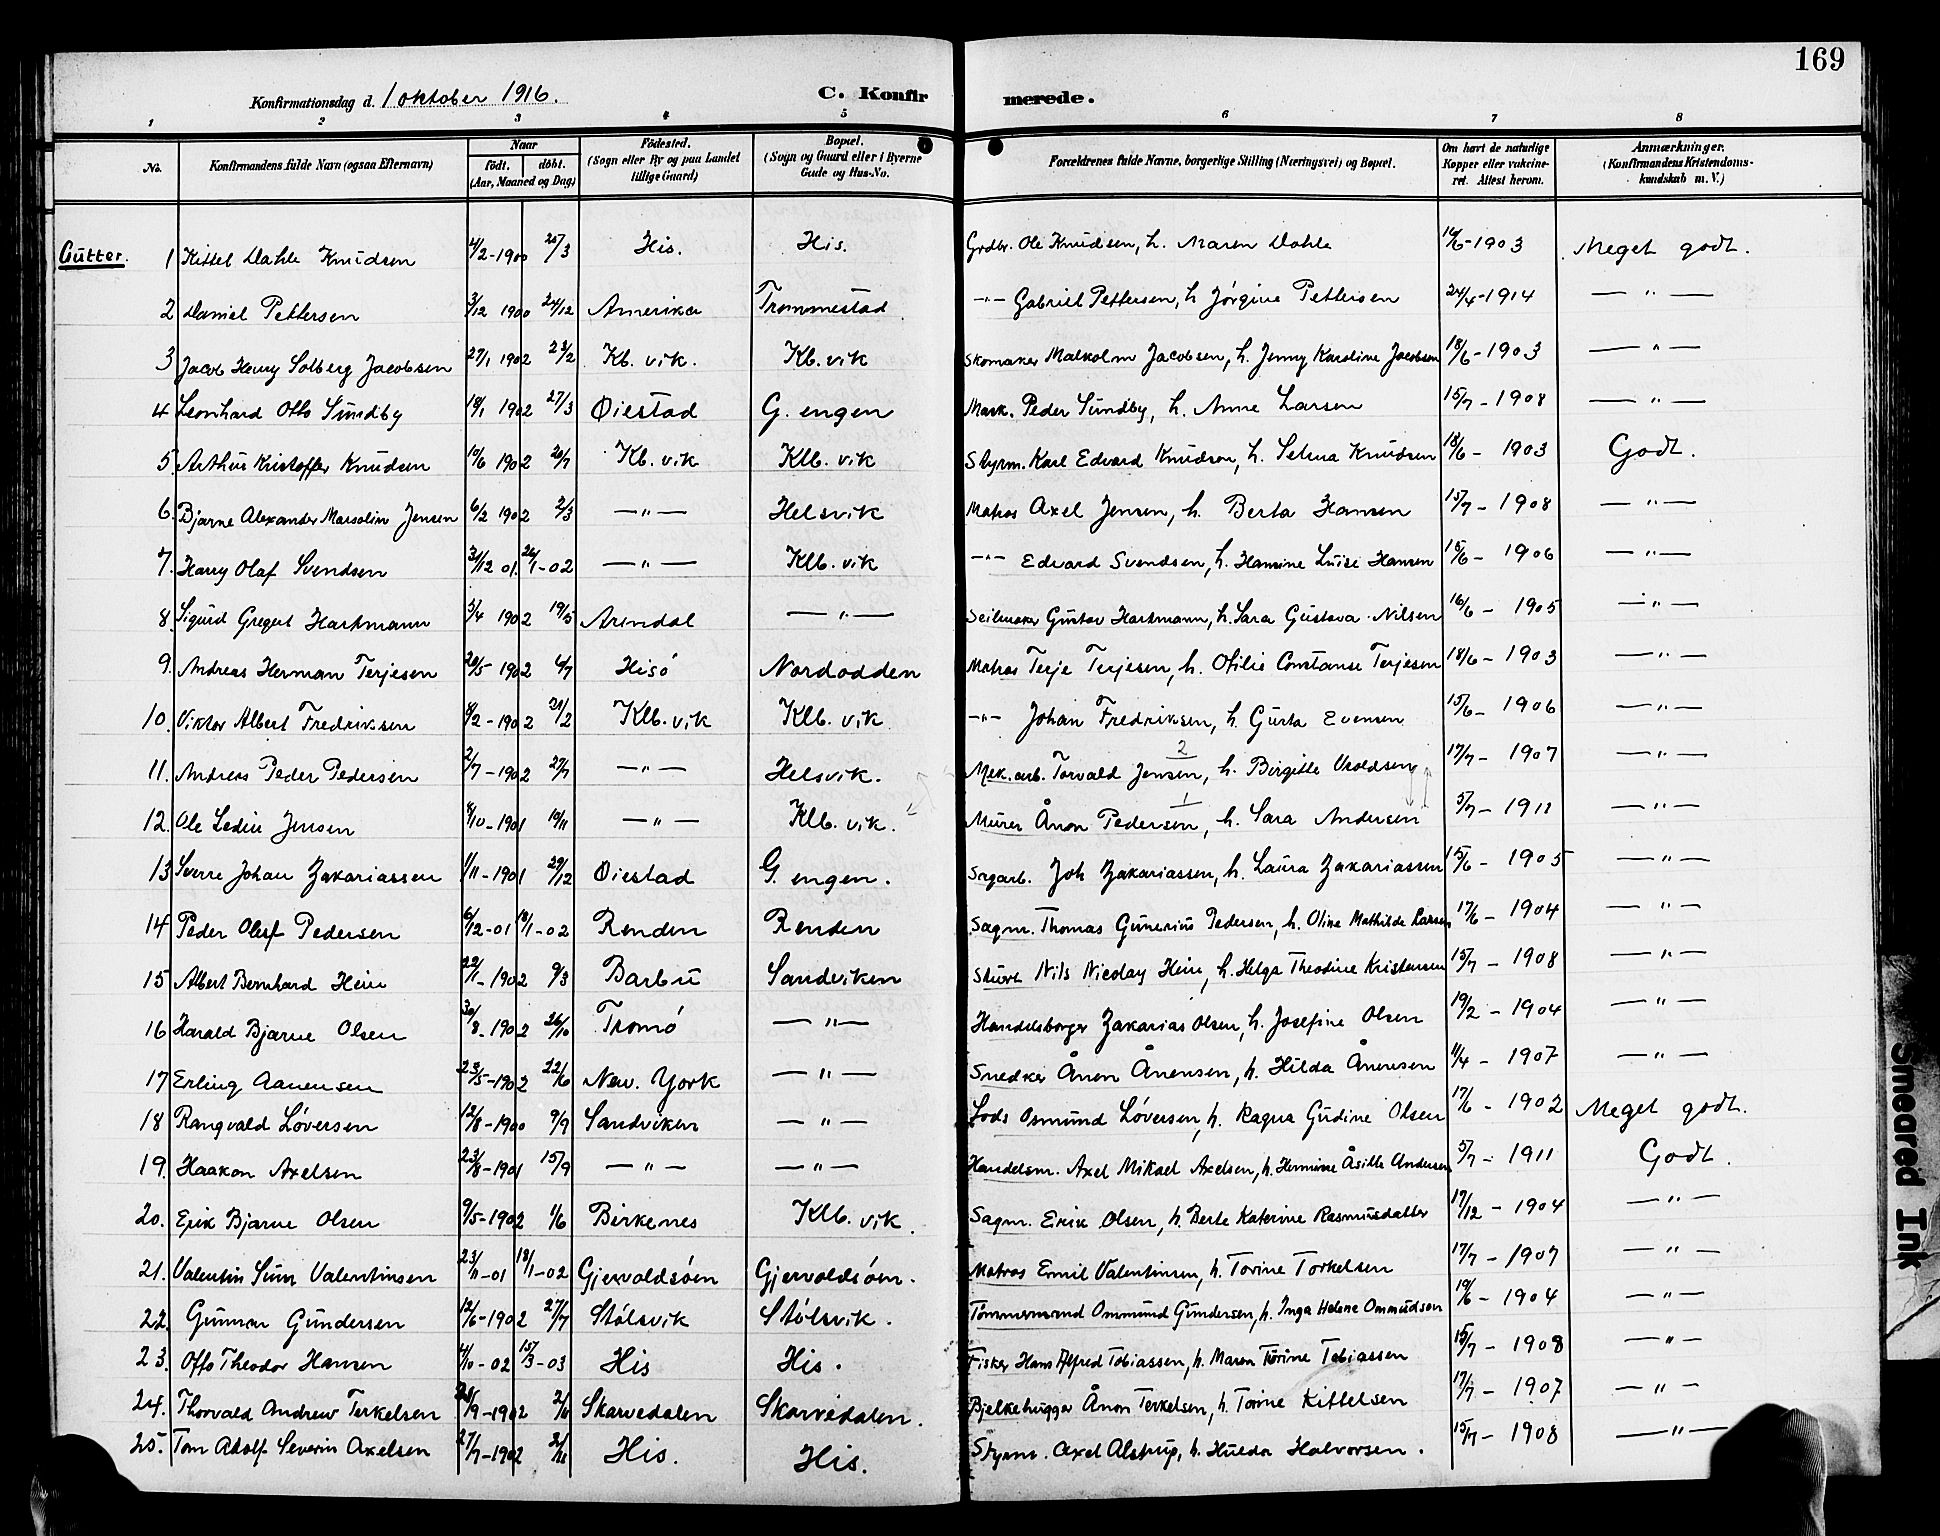 169
Konfirmationsdag d. 1 oktober 1916. C. Konfirmerede.
1 2 3 4 5 6 7 8
No. Konfirmandens fulde Navn (ogsaa Efternavn) Naar født. døbt. (Aar, Maaned og Dag) Fødested. (Sogn eller By og paa Landet tillige Gaard) Bopæl. (Sogn og Gaard eller i Byerne Gade og Hus-No. Forældrenes fulde Navne, borgerlige Stilling (Næringsvei) og Bopæl. Om havt de naturlige Kopper eller vakcineret. Attest herom. Anmærkninger. (Konfirmandens Kristendomskundskab m. V.)
Gutter. 1 Kittel Dahle Knudsen 4/2-1900 25/3 His. His. Grdbr. Ole Knudsen, h. Maren Dahle 16/6-1903 Meget godt.
2 Daniel Pettersen 3/12 1900 24/12 Amerika Trommestad —"— Gabriel Pettersen, h Jörgine Pettersen 24/4-1914 —"—
3 Jacob Henry Solberg Jacobsen 27/1 1902 23/2 Kb. vik. Kb. vik Skomaker Malkolm Jacobsen, h. Jenny Karoline Jacobsen 18/6-1903 —"—
4 Leonhard Otto Sundby 18/1 1902 27/3 Øiestad G. engen Mask. Peder Sundby, h. Anne Larsen 15/7-1908 —"—
5. Arthur Kristoffer Knudsen 10/6 1902 20/7 Kb. vik Klb. vik Styrm. Karl Edvard Knudsen, h. Selma Knudsen 18/6-1903 Godt.
6. Bjarne Alexander Marsolin Jensen 6/2 1902 2/3 —"— Helsvik Matros Axel Jensen, h. Berta Hansen 15/7-1908 —"—
7. Harry Olaf Svendsen 31/12 01. 26/1-02 —"— Klb. vik —"— Edvard Svendsen, h. Hansine Luise Hansen 15/6-1906 —"—
8. Sigurd Gregert Hartmann 5/4 1902 19/5 Arendal —"— Seilmaker Gustav Hartmann, h. Sara Gustava Nilsen 16/6-1905 —"—
9. Andreas Herman Terjesen 20/5-1902 6/7 Hisö Nordodden Matros Terje Terjesen, h. Otilie Constanse Terjesen 18/6-1903 —"—
10. Viktor Albert Fredriksen 8/2-1902 21/2 Klb. vik Klb. vik. —"— Johan Fredriksen, h. Gusta Evensen 15/6-1906 —"—
11. Andreas Peder Pedersen 2/7-1902 27/7 —"— Helsvik. Mek. arb. Torvald Jensen, h. Birgitte Usoldsen 17/7-1907 —"—
2
12. Ole Ledin Jensen 8/10-1901 10/11 —"— Klb. vik. Murer Ånon Pedersen, h. Sara Andersen 5/7-1911 —"—
1
13 Sverre Johan Zakariassen 1/11-1901 29/12 Øiestad G. engen. Sagarb. Joh Zakariassen, h. Laura Zakariassen 15/6-1905 —"—
14 Peder Oluf Pedersen 6/12-01 18/1-02 Renden Renden Sagm. Thomas Gunerius Pedersen, h. Oline Mathilde Larsen 17/6-1904 —"—
15 Albert Bernhard Hein 22/1-1902 9/3 Barbu Sandviken Stuert Nils Nicolay Hein, h. Helga Theodine Kristensen 15/7-1908 —"—
16 Harald Bjarne Olsen 30/8-1902 26/10 Tromö —"— Handelsborger Zakarias Olsen, h. Josefine Olsen 19/2-1904 —"—
17 Erling Aanensen 23/5-1902 22/6 New. York —"— Snedker Ånen Ånensen, h. Hilda Ånensen 11/4-1907 —"—
18 Rangvald Löversen 12/8-1900 9/9 Sandviken —"— Lods Osmund Löversen, h. Ragna Gudine Olsen 17/6-1902 Meget godt.
19. Haakon Axelsen 23/8-1901 15/9 —"— —"— Handelsm. Axel Mikael Axelsen, h. Hermine Åsille Andersen 5/7-1911 Godt.
20. Erik Bjarne Olsen 9/5-1902 1/6 Birkenes Klb. vik. Sagm. Erik Olsen, h. Berte Katerine Rasmusdatter 17/12-1904 —"—
21. Valentin Sun Valentinsen 23/11-01 18/1-02 Gjervoldsöen Gjervoldsöen. Matros Ermil Valentinsen, h. Torine Torkelsen 17/7-1907 —"—
22. Gunnar Gundersen 12/6-1902 27/7 Stölsvik Stölsvik. Tömmermand Ommund Gundersen, h. Inga Helene Ommudsen 19/6-1904 —"—
23. Otto Theodor Hansen 4/10-02 15/3-03 His His. Fisker Hans Alfred Tobiassen, h. Maren Torine Tobiassen 15/7-1908 —"—
24. Thorvald Andrew Terkelsen 28/9-1902 Skarvedalen Skarvedalen. Bjelkehugger Ånon Terkelsen, h. Torine Kittelsen 17/7-1907 —"—
25. Tom Adolf Severin Axelsen 27/7-1902 His. His. Styrm. Axel Alstrup, h. Hulda Halvorsen. 15/7-1908 —"—
Smeared Ink